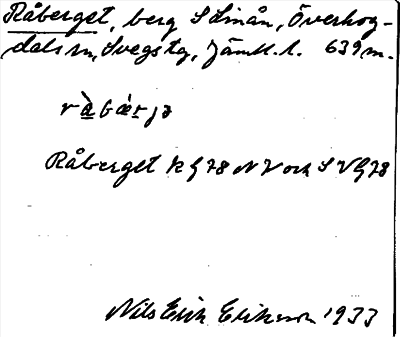 Råberget, berg S Linån, Överhog-
dals sn, Svegs tg, Jämtl. l. 639 m.
Råberget k G 78 NV och S V G 78
Nils Erik Eriksson 1933